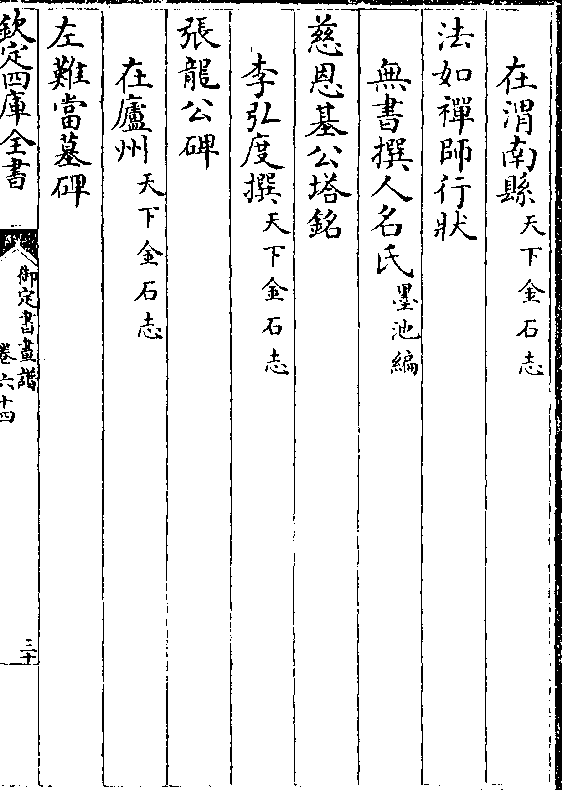 在渭南縣天下金石志
法如禪師行狀
無書撰人名氏墨池編
慈恩基公塔銘
李弘度撰天下金石志
張龍公碑
在廬州天下金石志
左難當墓碑
欽定四庫全書
御定書畫譜
卷六十四
三十